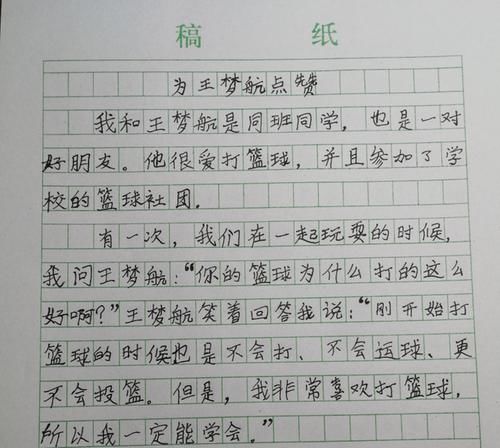 稿 纸
为王梦航点赞
我和王梦航是同班同学，也是一对
好朋友。他很爱打篮球，并且参加了学
校的篮球社团。
有一次，我们在一起玩耍的时候，
我问王梦航：“你的篮球为什么打的这么
好啊？”王梦航笑着回答我说：“刚开始打
篮球的时候也是不会打、不会运球、更
不会投篮。但是，我非常喜欢打篮球，
所以我一定能学会。”